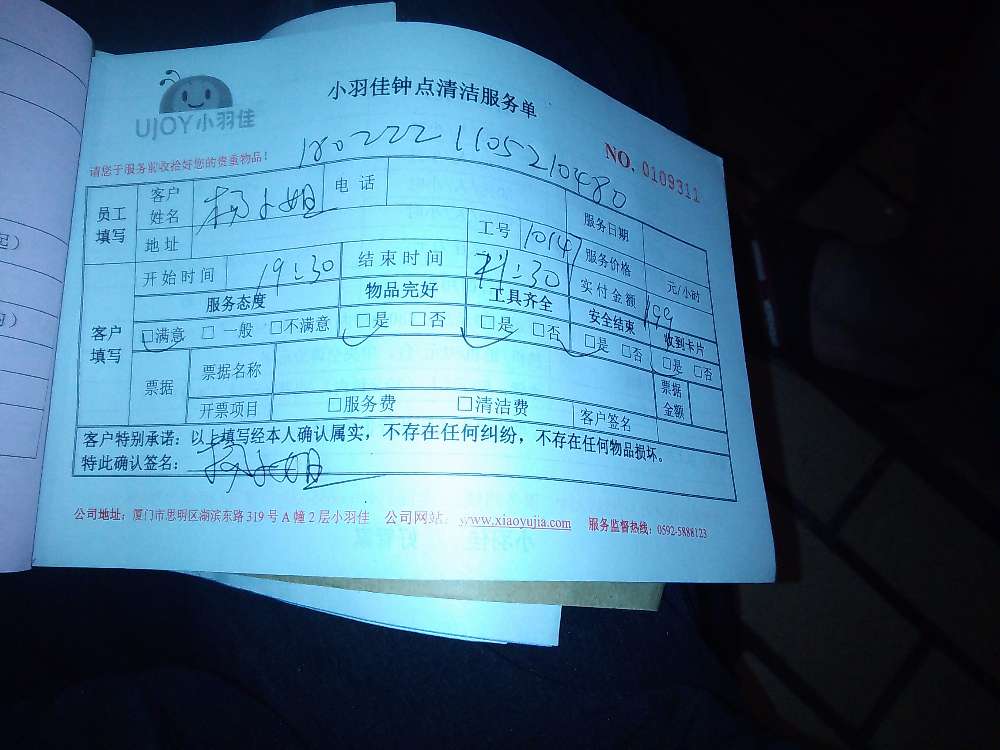 UJOY小羽佳
小羽佳钟点清洁服务单
请您于服务前收拾好您的贵重物品!
1802221105210480
NO. 0109311
员工填写 客户姓名 杨小姐 电话 服务日期
地址 工号 10147 服务价格 元/小时
开始时间 19:30 结束时间 21:30 实付金额 199
客户填写 服务态度 物品完好 工具齐全 安全结束 收到卡片
□满意 □一般 □不满意 □是 □否 □是 □否 □是 □否 □是 □否
票据 票据名称 票据金额
开票项目 □服务费 □清洁费 客户签名
客户特别承诺:以上填写经本人确认属实,不存在任何纠纷,不存在任何物品损坏。
特此确认签名: 杨小姐
公司地址:厦门市思明区湖滨东路319号A幢2层小羽佳 公司网站: www.xiaoyujia.com 服务监督热线:0592-5888123